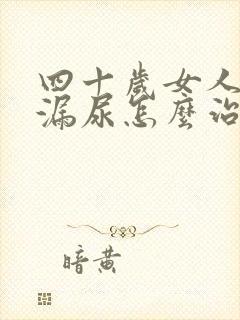 四十歲女人
漏尿怎麼治
暗黄